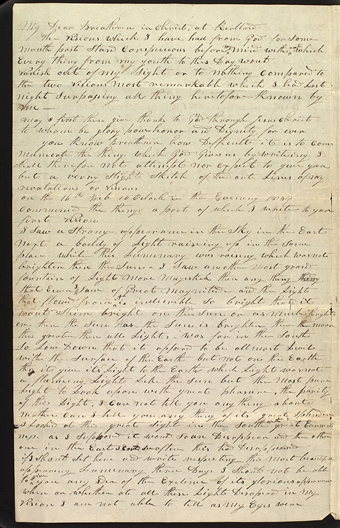 My Dear Breathren in Christ, at Kirtland
The visions which I have had from God for some
month past Stand Conspicuous before my mind with which
Every thing from my youth to this Day wout
vanish out of my Sight or to Nothing Compared to
the two visions most remarkable which I had last
night Surpassing all thing heretofore known by
me
may I first then give thanks to God through Jesus Christ
to whom be glory power honor and Dignity for ever
you know breathren how Difficult it is to com
municate the things which God Gives us by writeing I
shall therefore not attempt nor Expect to give you
but a verry Slight Sketch of the out Lines of my
revalations or visions
on the 16th Feb 10 oClock in the Evening
Commenced the things a part of which I write to you
first vision
I saw a Strang appearance in the Sky in the East
next a body of Light raising up in the Same
place while this Lumenary was raising which waxed
brighter then the Sun I Saw another most grand
of Light More Magnifick then any thing
that Ever I Saw of Great Magnitude and the Light
that flowed from it so bright that it
would Shine bright on the Sun or as much brighter
then the Sun as the Sun is brighter then the moon
this greater then all Lights, was far in the South
So Low Down that it appeard to be allmost Level
with the Surface of the Earth but not on the Earth
tho it give its Light to the Earth which Light was not
a glareing Light Like the Sun but the Most pure
Light to Look upon with great pleasure, the purity
of this Light, I can not tell you any thing about
neither Can I tell you any thing of its great Splendor
I Looked at this great Light in the South
as I Supposed it would Soon Disappear and the other
one in the East Soon after this had Disappeared
if I Should Set here and write respecting this Most beautiful
appearing Lumenary three Days I Should not be able
to give you any Idea of the Exelence of its glorious appearance
when or whether at all these Lights Disapear in My
vision I am not able to tell as My Eyes were